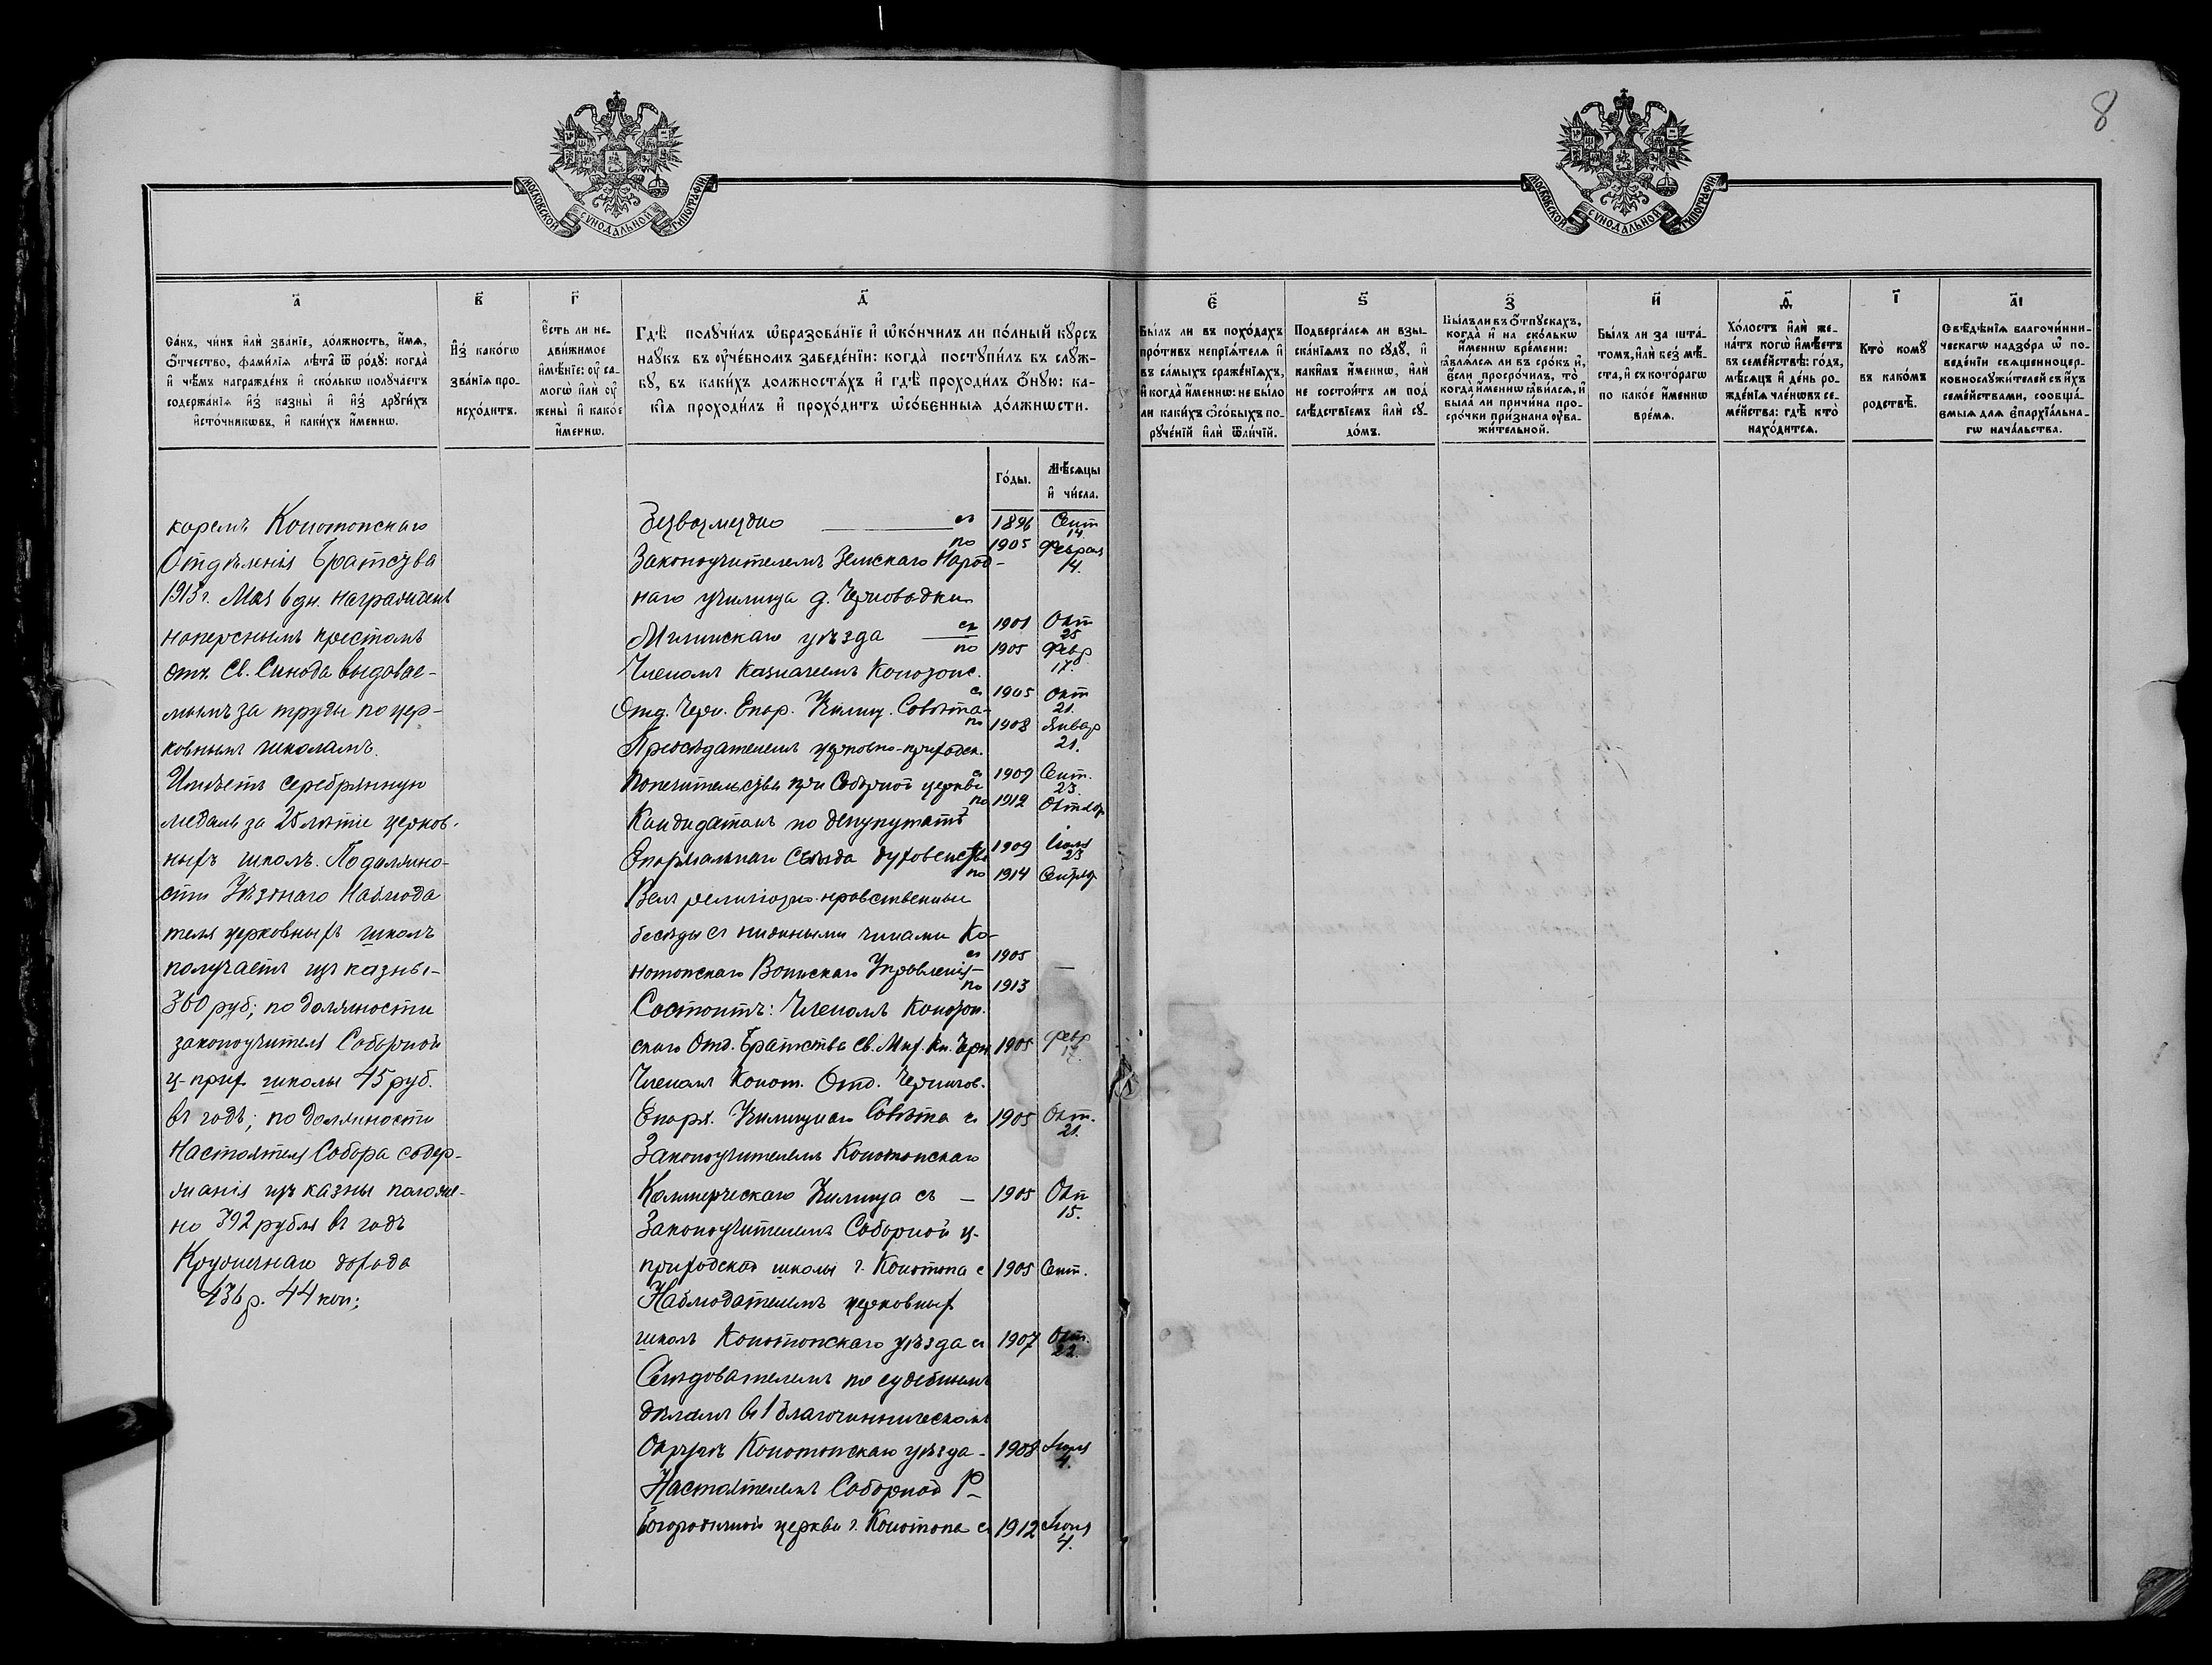 8
МОСКОВСКОЙ СѴНОДАЛЬНОЙ ТИПОГРАФІИ
МОСКОВСКОЙ СѴНОДАЛЬНОЙ ТИПОГРАФІИ
а҃
Са́нъ, чи́нъ и҆лѝ зва́нїе, до́лжность, и҆́мѧ,
ѻ҆́тчество, фами́лїѧ лѣ́та ѿ ро́дꙋ: когда̀
и҆ чѣ́мъ награжде́нъ и҆ ско́лькѡ полꙋча́етъ
содержа́нїѧ и҆з̾ казны̀ и҆ и҆з̾ дрꙋги́хъ
и҆сто́чникѡвъ, и҆ каки́хъ и҆́меннѡ.
в҃
И҆з̾ како́гѡ
зва́нїѧ про-
исхо́дитъ.
г҃
Є҆́сть ли не-
дви́жимое
и҆мѣ́нїе: ᲂу҆ са-
могѡ̀ и҆лѝ ᲂу҆
жены̀ и҆ како́е
и҆́меннѡ.
д҃
Гдѣ̀ полꙋчи́лъ ѡ҆бразова́нїе и҆ ѡ҆ко́нчилъ ли по́лный кꙋ́рсъ
наꙋ́къ въ ᲂу҆че́бномъ заведе́нїи: когда̀ постꙋпи́лъ въ слꙋ́ж-
бꙋ, въ каки́хъ должностѧ́хъ и҆ гдѣ̀ проходи́лъ ѻ҆́нꙋю: ка-
кі́ѧ проходи́лъ и҆ прохо́дитъ ѡ҆со́бенныѧ до́лжнѡсти.
Го́ды.
Мѣ́сѧцы
и҆ чи́сла.
є҃
Бы́лъ ли въ похо́дахъ
про́тивъ непрїѧ́телѧ и҆
въ са́мыхъ сраже́нїѧхъ,
и҆ когда̀ и҆́меннѡ: не бы́ло
ли каки́хъ ѻ҆со́быхъ по-
рꙋче́нїй и҆лѝ ѿли́чїй.
ѕ҃
Подверга́лсѧ ли взы-
ска́нїѧмъ по сꙋдꙋ̀, и҆
каки́мъ и҆́меннѡ, и҆лѝ
не состои́тъ ли под̾
слѣ́дствїемъ и҆лѝ сꙋ-
до́мъ.
з҃
Бы́лъ ли въ ѻ҆́тпꙋскахъ,
когда̀ и҆ на ско́лькѡ
и҆́меннѡ вре́мени:
ꙗ҆влѧ́лсѧ ли въ сро́къ и҆,
є҆́сли просро́чилъ, то̀
когда̀ и҆́меннѡ ꙗ҆ви́лсѧ, и҆
была̀ ли причи́на про-
сро́чки при́знана ᲂу҆ва-
жи́тельной.
и҃
Бы́лъ ли за шта́-
томъ, и҆лѝ без̾ мѣ́-
ста, и҆ съ кото́рагѡ
по како́е и҆́меннѡ
вре́мѧ.
ѳ҃
Хо́лостъ и҆лѝ же-
на́тъ когѡ̀ и҆мѣ́етъ
въ семе́йствѣ: го́дъ,
мѣ́сѧцъ и҆ де́нь ро-
жде́нїѧ чле́нѡвъ се-
ме́йства: гдѣ̀ кто̀
нахо́дитсѧ.
і҃
Кто̀ комꙋ̀
въ како́мъ
родствѣ̀.
а҃і
Свѣ́дѣнїѧ благочи́нни-
ческагѡ надзо́ра ѡ҆ по-
веде́нїи свѧщенноцер-
ковнослꙋжи́телей съ и҆́хъ
семе́йствами, сообща́-
ємыѧ для є҆пархїа́льна-
гѡ нача́льства.
каремъ Конотопскаго
Отдѣленія Братства
1913 г. Мая 6 дн. награжденъ
наперснымъ крестомъ
отъ Св. Синода выдавае-
мымъ за труды по цер-
ковнымъ школамъ.
Имѣетъ серебрянную
медаль за 25 лѣтіе церков-
ныхъ школъ. По должно-
сти Уѣзднаго Наблюда
теля церковныхъ школъ
получаетъ изъ казны-
360 руб; по должности
законоучителя Соборной
ц-прих. школы 45 руб.
въ годъ; по должности
Настоятеля Собора содер-
жанія изъ казны положе-
но 392 рубля въ годъ
Кружечнаго дохода
436 р. 44 коп;
Безвозмездно съ 1896 Сент 14
по 1905 Феврал 14.
Законоучителемъ Земскаго Народ-
наго училища д. Черноводки
Мглинскаго уѣзда съ 1901 Окт 25
по 1905 Февр 17.
Членомъ Казначеемъ Конотопс.
Отд. Черн. Епар. Училищ. Совѣта- с 1905 Окт 21.
по 1908 Январ 21.
Предсѣдателемъ церковно-приходск.
Попечительства при Соборной церкви с 1909 Сент. 23.
по 1912 Октябр
Кандидатомъ по депутатѣ
Епархіальнаго Съѣзда духовенства 1909 Іюля 23
по 1914 Сентяб
Велъ религіозно-нравственныя
бесѣды съ нижними чинами Ко-
нотопскаго Воинскаго Управленія- съ 1905 —
по 1913
Состоитъ: Членомъ Конотоп.
скаго Отд. Братства Св. Мих. Кн. Черн 1905 Февр 17.
Членомъ Конот. Отд. Чернигов.
Епарх. Училищнаго Совѣта съ 1905 Окт. 21.
Законоучителемъ Конотопскаго
Коммерческаго Училища съ — 1905 Окт 15.
Законоучителемъ Соборной ц-
приходской школы г. Конотопа с 1905 Сент.
Наблюдателемъ церковных
школъ Конотопскаго уѣзда съ 1907 Окт. 22.
Слѣдователемъ по судебнымъ
дѣламъ въ 1 благочинническомъ
Округѣ Конотопскаго уѣзда - 1908 4.
Настоятелемъ Соборной Р-
Богородичной церкви г. Конотопа съ 1912 4.